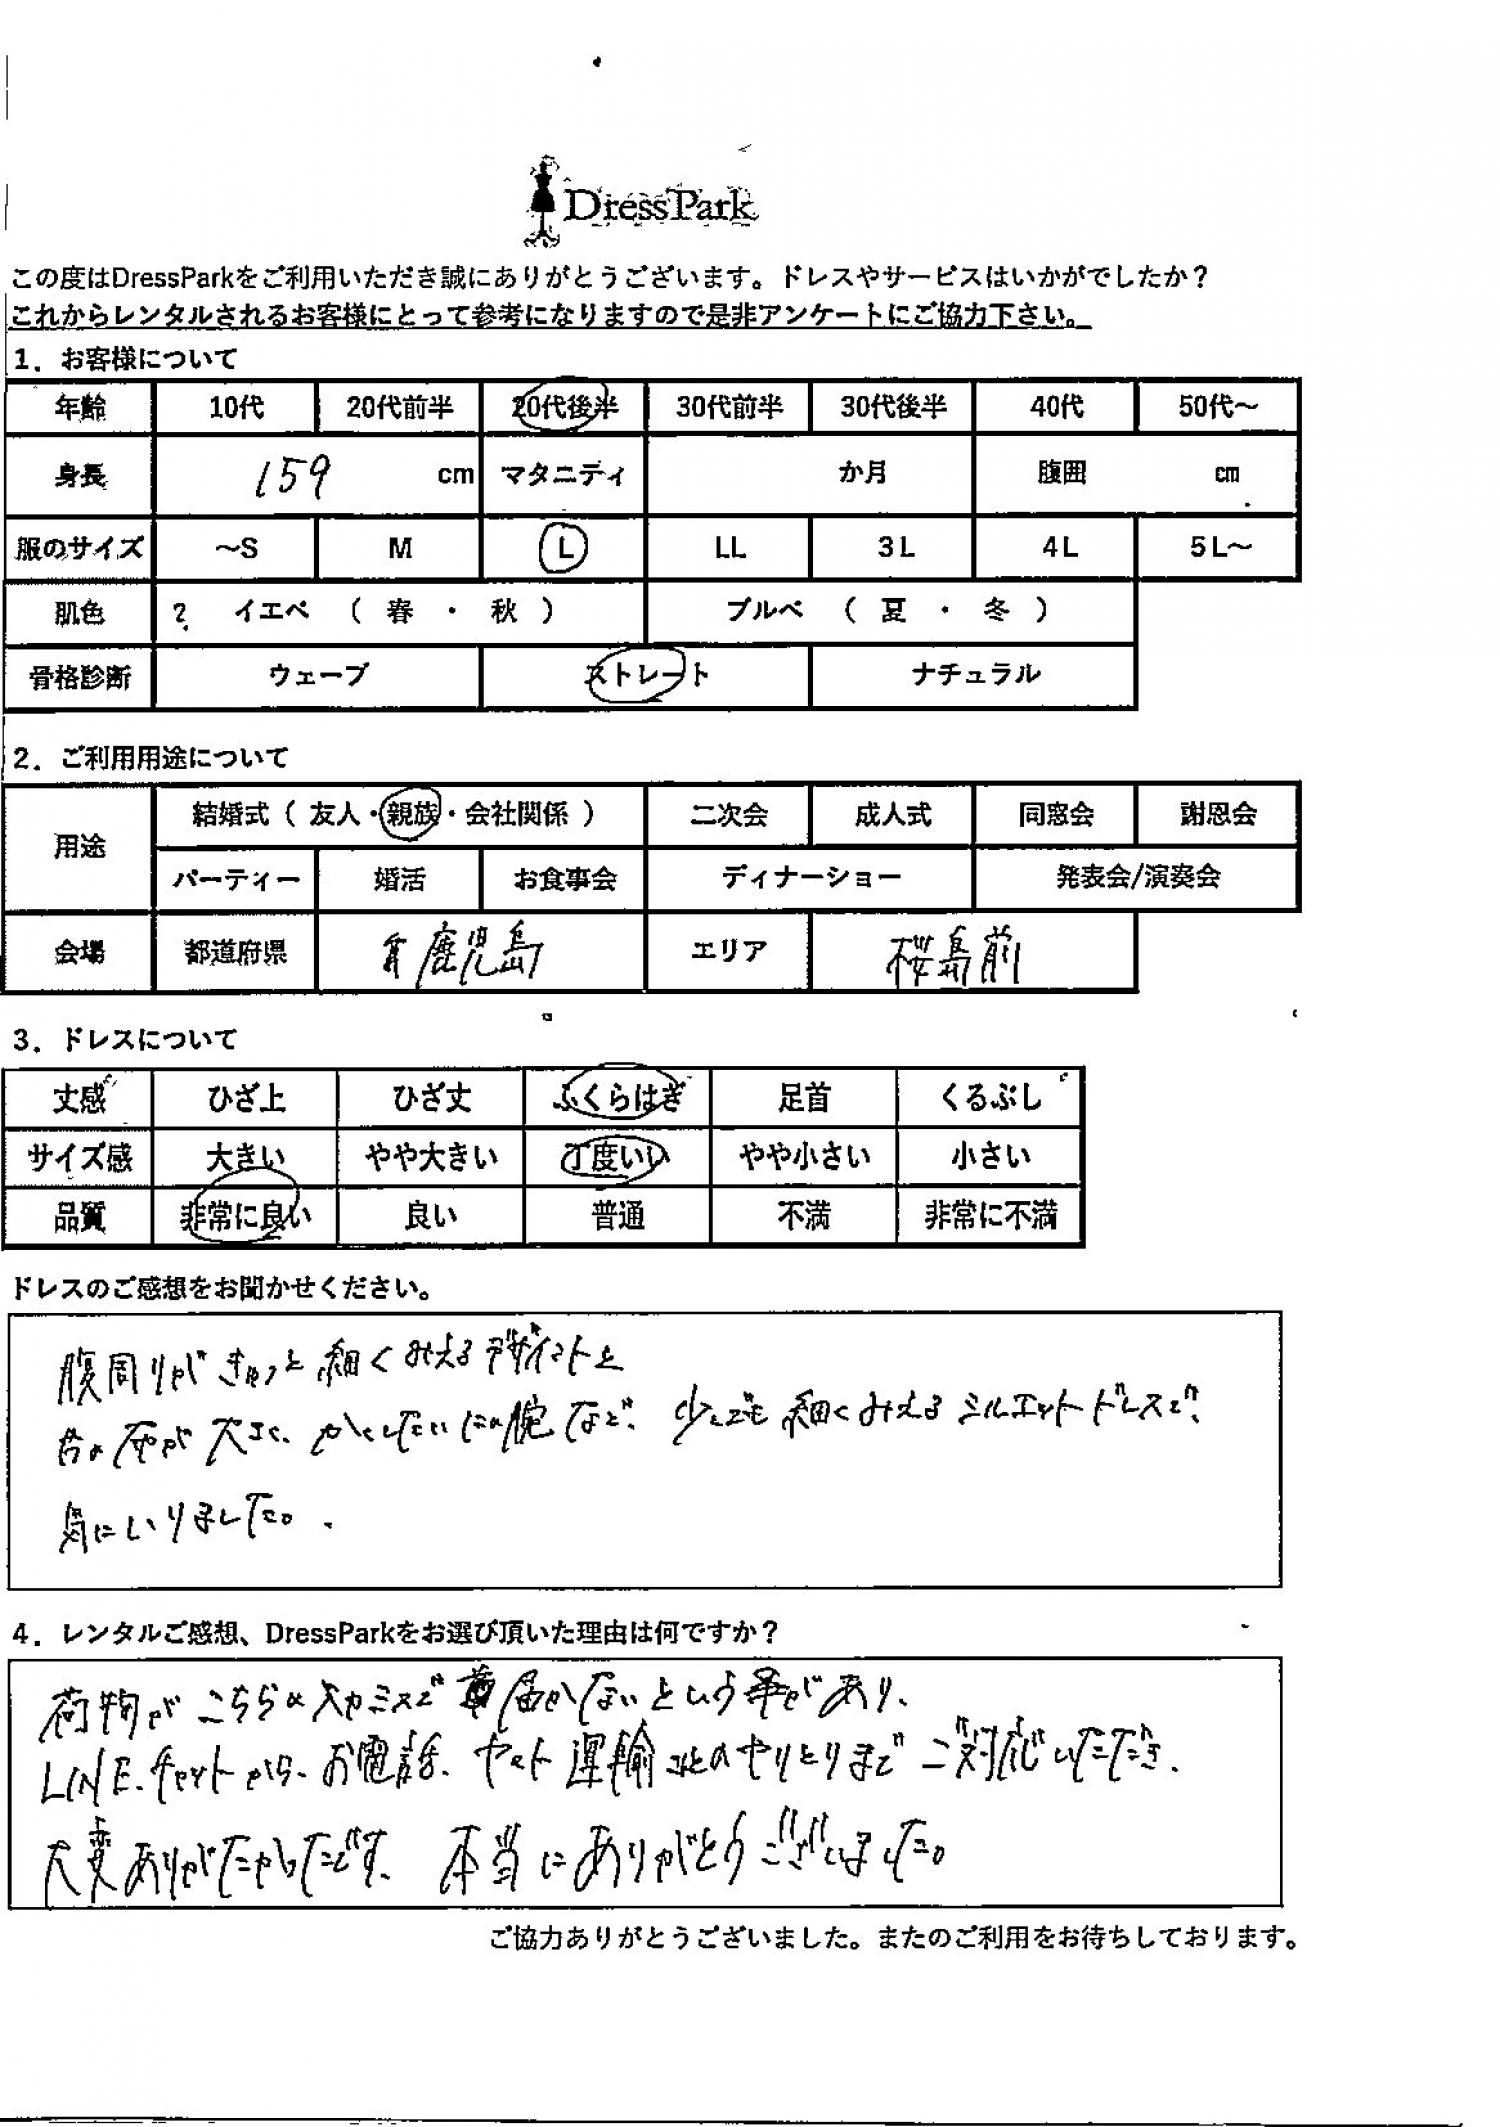 DressPark
この度はDressParkをご利用いただき誠にありがとうございます。ドレスやサービスはいかがでしたか?
これからレンタルされるお客様にとって参考になりますので是非アンケートにご協力下さい。
1．お客様について
年齢 10代 20代前半 20代後半 30代前半 30代後半 40代 50代～
身長 159 cm マタニティ か月 腹囲 cm
服のサイズ ～S M L LL 3L 4L 5L～
肌色 ? イエベ （ 春 ・ 秋 ） ブルベ （ 夏 ・ 冬 ）
骨格診断 ウェーブ ストレート ナチュラル
2．ご利用用途について
用途 結婚式（ 友人・親族・会社関係 ） 二次会 成人式 同窓会 謝恩会
パーティー 婚活 お食事会 ディナーショー 発表会/演奏会
会場 都道府県 鹿児島 エリア 桜島前
3．ドレスについて
丈感 ひざ上 ひざ丈 ふくらはぎ 足首 くるぶし
サイズ感 大きい やや大きい 丁度いい やや小さい 小さい
品質 非常に良い 良い 普通 不満 非常に不満
ドレスのご感想をお聞かせください。
腹周りがきゅっと細くみえるデザイントと
が大きく、かくしたい二の腕など、少しでも細くみえるシルエットドレスで、
気にいりました。
4．レンタルご感想、DressParkをお選び頂いた理由は何ですか?
荷物がこちらの入力ミスで届かないという事があり、
LINE、チャットから、お電話、ヤマト運輸とのやりとりまでご対応いただき、
大変ありがたかったです、本当にありがとうございました。
ご協力ありがとうございました。またのご利用をお待ちしております。